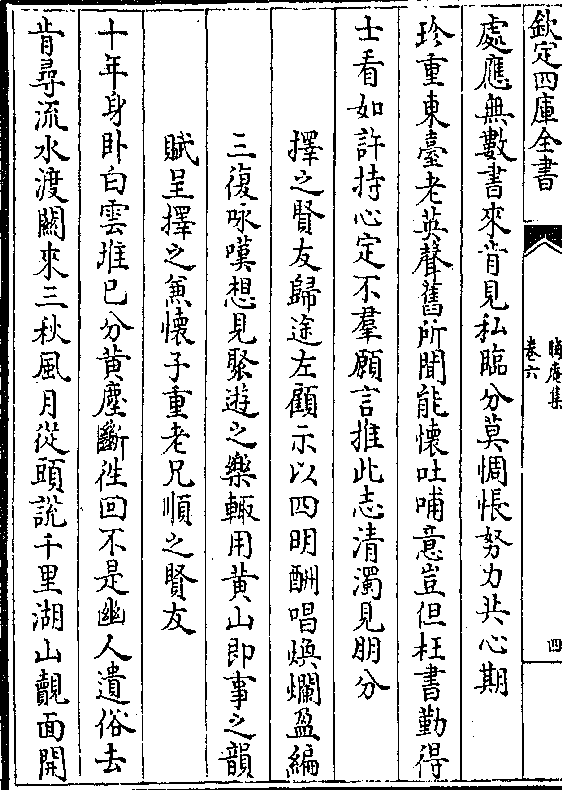 欽定四庫全書
晦庵集
卷六
四
處應無數書來肯見私臨分莫惆悵努力共心期
珍重東臺老英聲舊所聞能懷吐哺意豈但枉書勤得
士看如許持心定不羣願言推此志清濁見朋分
擇之賢友歸途左顧示以四明酬唱煥爛盈編
三復咏嘆想見聚遊之樂輙用黄山即事之韻
賦呈擇之兼懷子重老兄順之賢友
十年身卧白雲堆已分黄塵斷徃回不是幽人遺俗去
肯尋流水渡關來三秋風月從頭説千里湖山覿面開